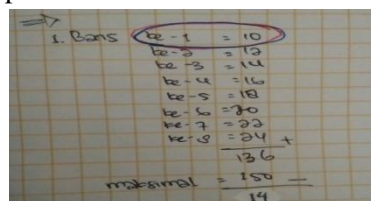 1. Baris ke-1 = 10
ke-2 = 12
ke-3 = 14
ke-4 = 16
ke-5 = 18
ke-6 = 20
ke-7 = 22
ke-8 = 24 +
136
maksimal = 150 -
14